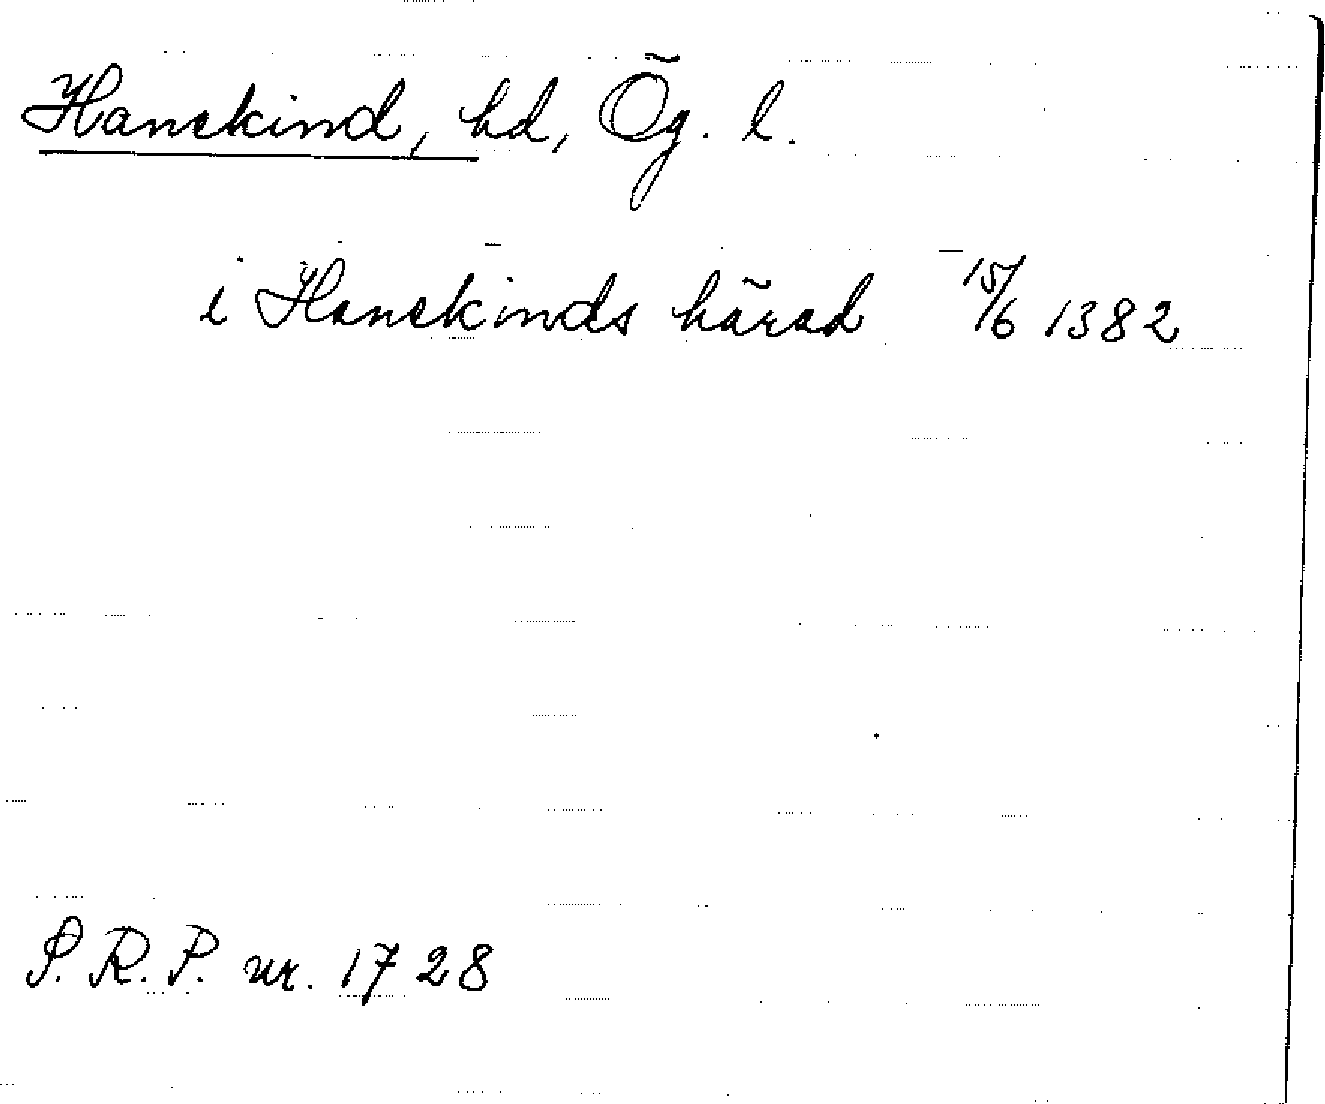 Hanekind, hd, Ög. l.
i Hanekinds härad 15/6 1382
S. R. P. nr. 1728